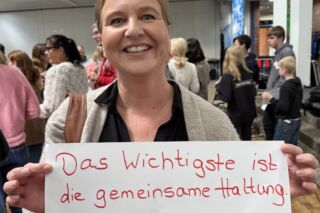 Das Wichtigste ist
die gemeinsame Haltung.